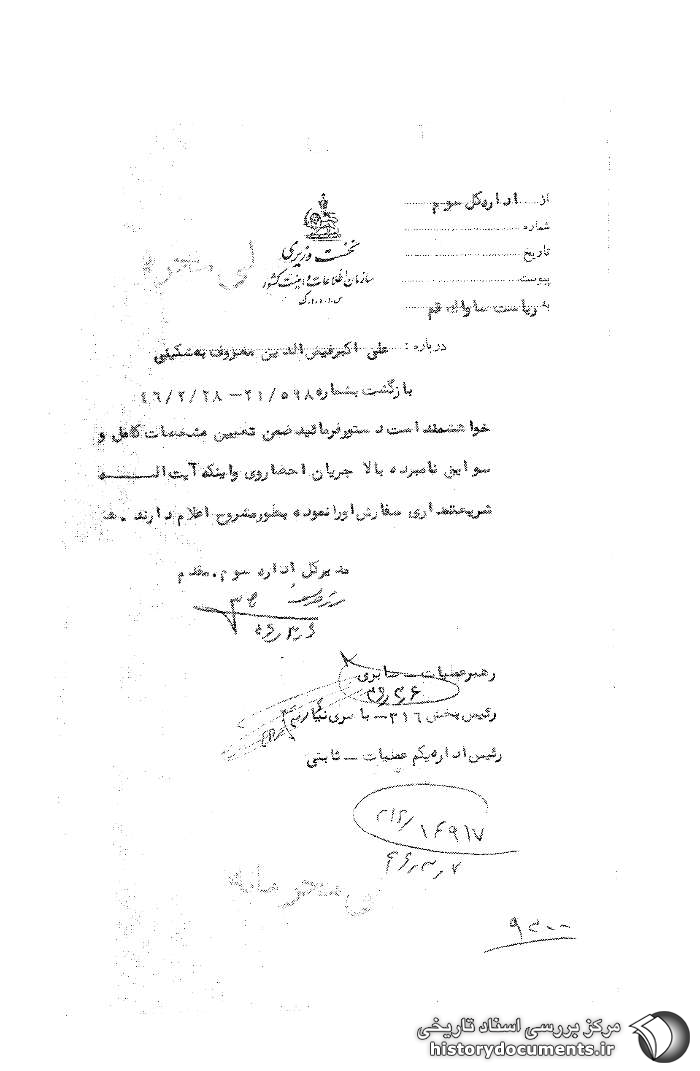 از اداره کل سوم
شماره
تاریخ
پیوست
به ریاست ساواک قم
نخست وزیری
سازمان اطلاعات و امنیت کشور
س.ا.و.ا.ک
درباره: علی اکبر فیض الدین معروف به مشکینی
بازگشت بشماره ۲۱/۵۹۸ – ۴۶/۲/۲۸
خواهشمند است دستور فرمائید ضمن تعیین مشخصات کامل و
سوابق نامبرده بالا جریان احضار وی و اینکه آیت الـــــه
شریعتمداری سفارش اورا نموده بطور مشروح اعلام دارند. هـ
مدیرکل اداره سوم. مقدم
رهبر عملیات – صابری
رئیس بخش ۳۱۶ –
رئیس اداره یکم عملیات – ثابتی
۳۱۶/
۱۶۹۱۷
۴۶/۳/۷
خیلی محرمانه
مرکز بررسی اسناد تاریخی
historydocuments.ir